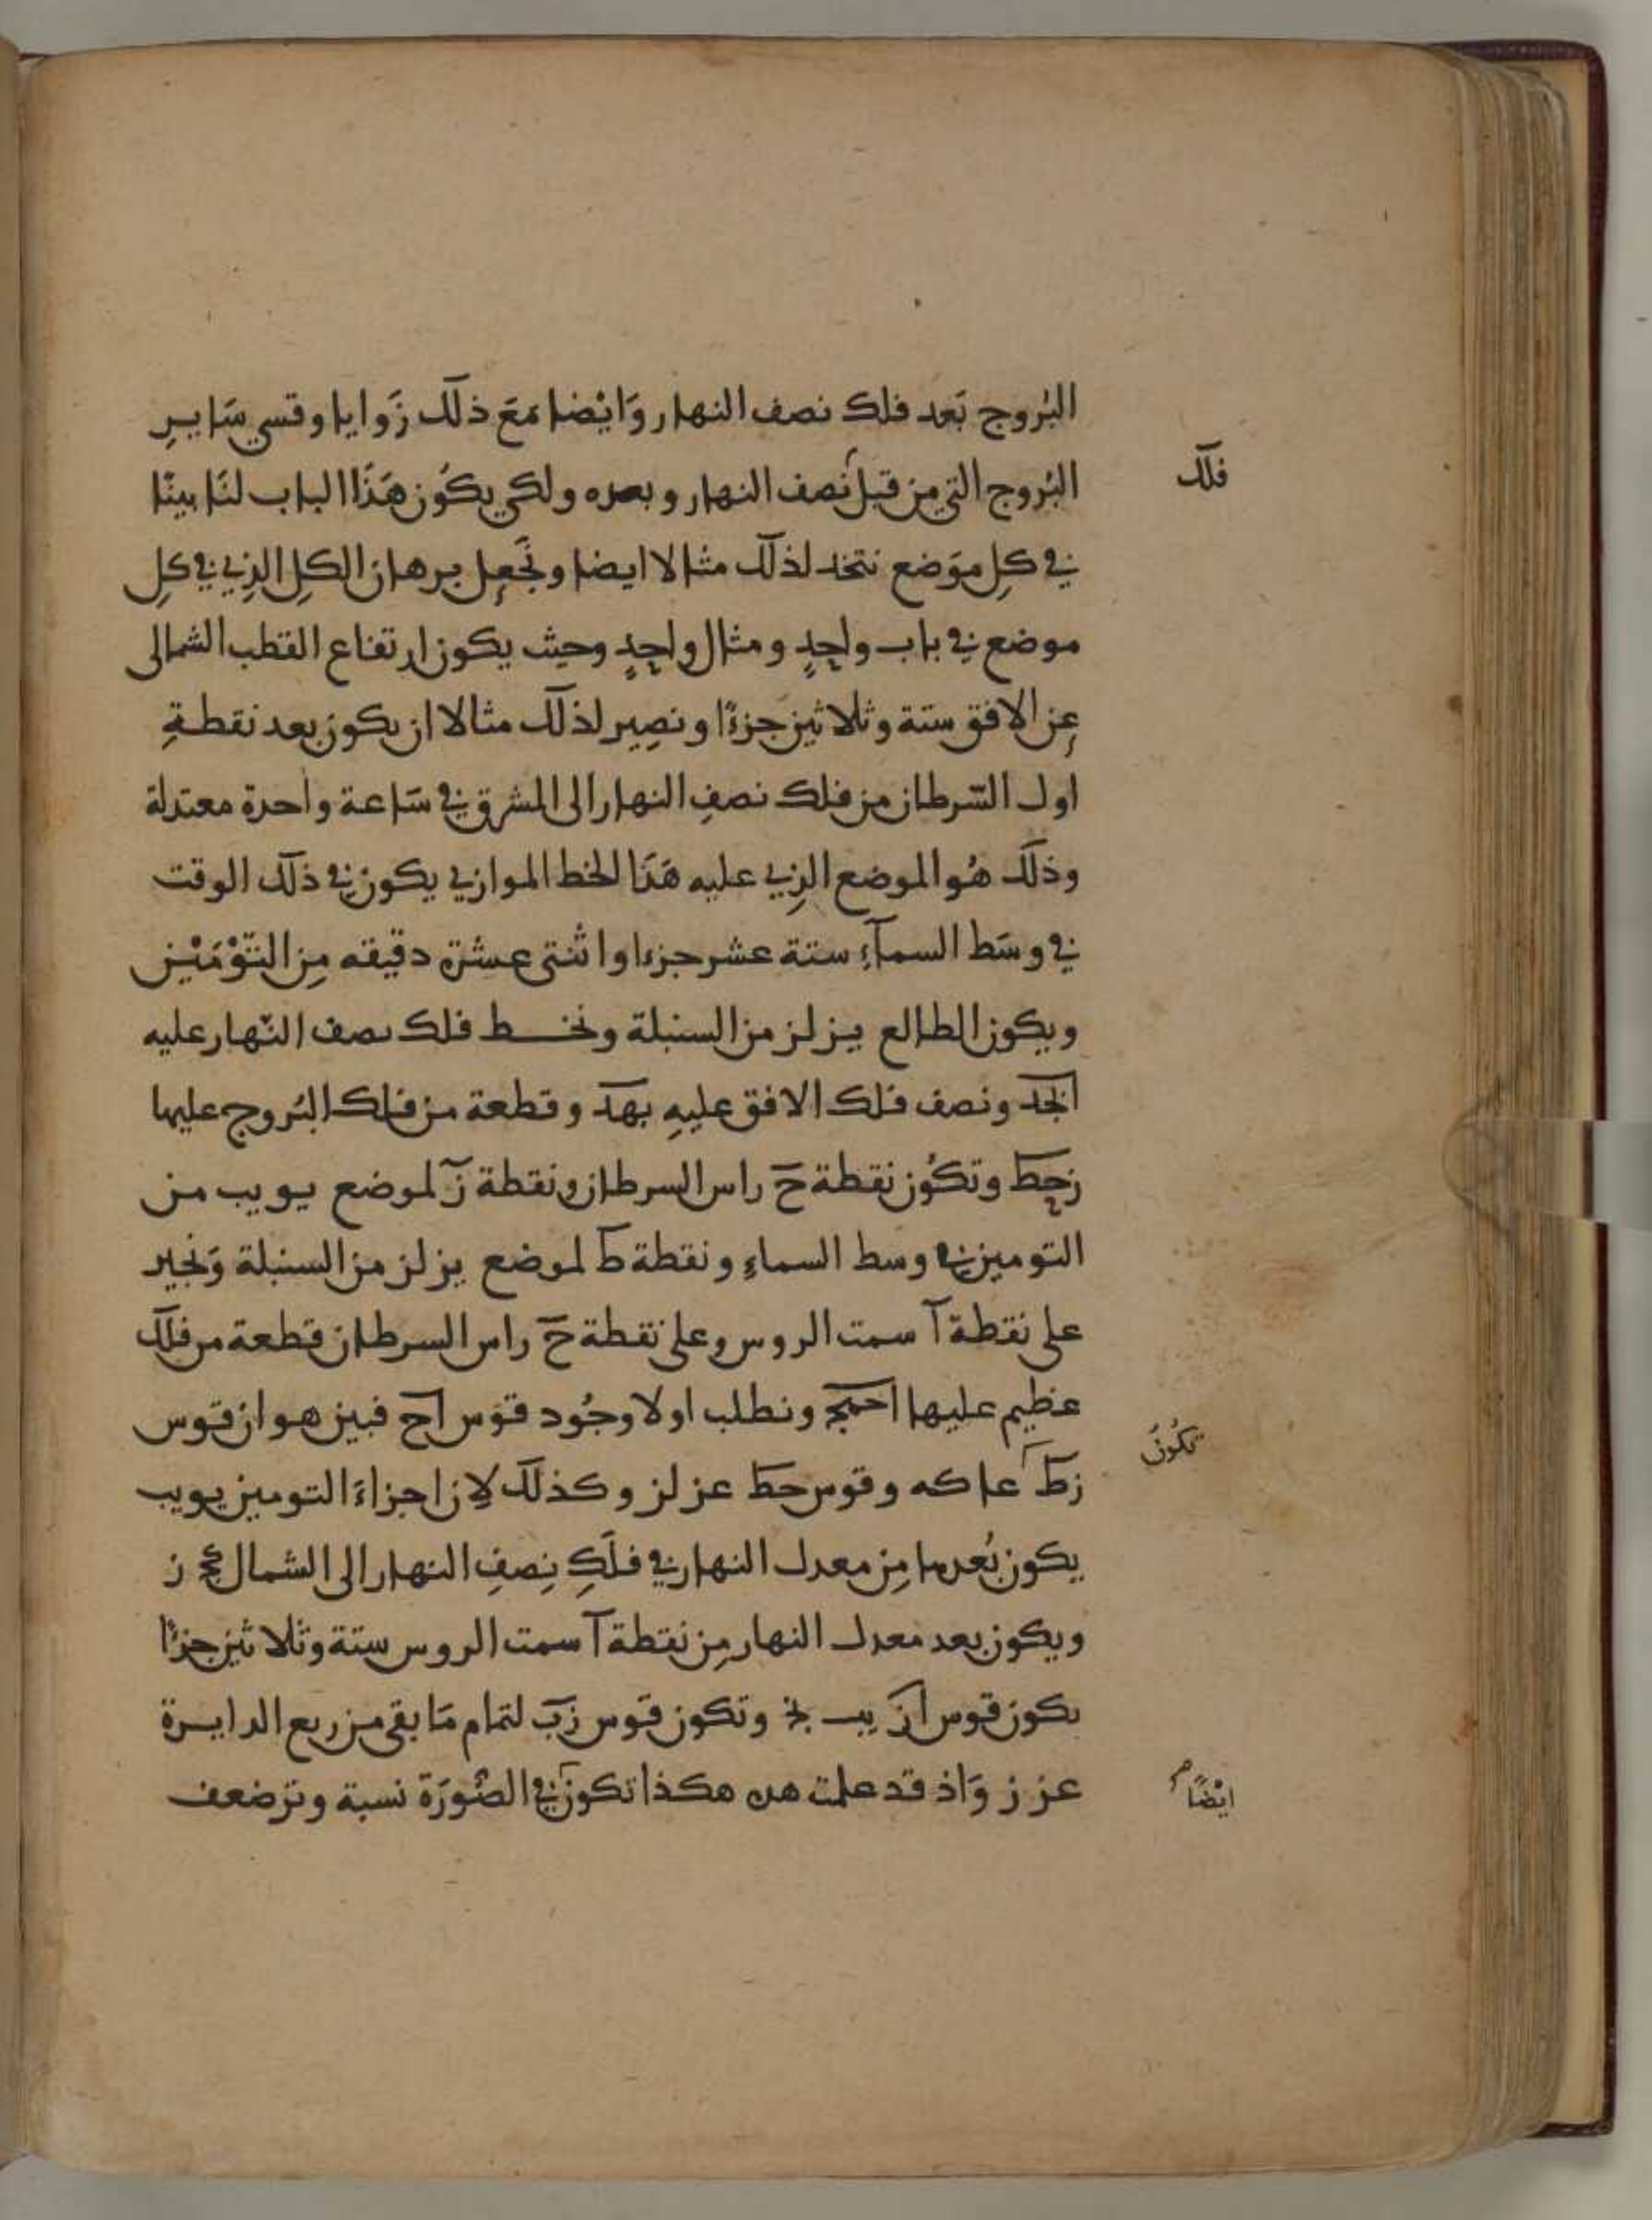 البُروج بَعد فلك نصف النهار وَايْضا مَعَ ذلك زَوايا وقسي سَايرِ
فلك
البُروج التي من قبل نصف النهار وبعده ولكي يكوُن هَذَا الباب لنَا بينًا
في كلِ موَضع نتخد لذلك مثالا ايضا ونَجعِل برهان الكلِ الذِي في كلِ
موضع في باب واحِدٍ ومثال واحِدٍ وحيث يكون ارتفاع القطب الشمالى
عِن الافق ستة وثلاثين جزءًا ونصِير لذلك مثالا ان يكون بعد نقطةِ
اول السّرطان من فلك نصفِ النهار الى المشرق في سَاعة واحدة معتدلة
وذلك هُو الموضع الذِي عليه هَذَا الخط الموازي يكون في ذلك الوقت
في وسَط السمآءِ ستة عشر جزءا واثنتى عشرة دقيقه مِن التَّوْمَيْن
ويكون الطالع يز لز من السنبلة ونخط فلك نصف النّهار عليه
ابجد ونصف فلك الافق عليهِ بهد وقطعة من فلك البُروج عليها
زحط وتكوُن نقطة ح راس السرطان ونقطة ز لموضع يو يب من
التومين في وسط السماءِ ونقطة ط لموضع يز لز من السنبلة وَنجيز
على نقطة آ سمت الروس وعلى نقطة ح راس السرطان قطعة من فلك
عظيم عليها احهج ونطلب اولا وجُود قوَس اح فبين هو ان قوس
تكُونُ
زط عا كه وقوس حط عز لز وكذلك لِان اجزاءَ التومين يو يب
يكون بُعدها مِن معدل النهار في فلَكِ نِصفِ النهار الى الشمال كج ز
ويكون بعد معدل النهار مِن نقطة آ سمت الروس ستة وثلاثين جزءًا
يكون قوس از يب نج وتكون قَوس زب لتمام مَا بقى من ربع الدايرة
عز ز وَاذ قد علمت هده هكذا تكون في الصُّورَة نسبة وتر ضعف
ايْضًا